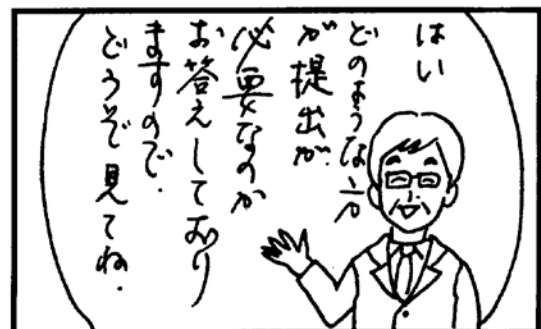 はい
どのような方
が提出が
必要なのか
お答えしており
ますので、
どうぞ見てね.